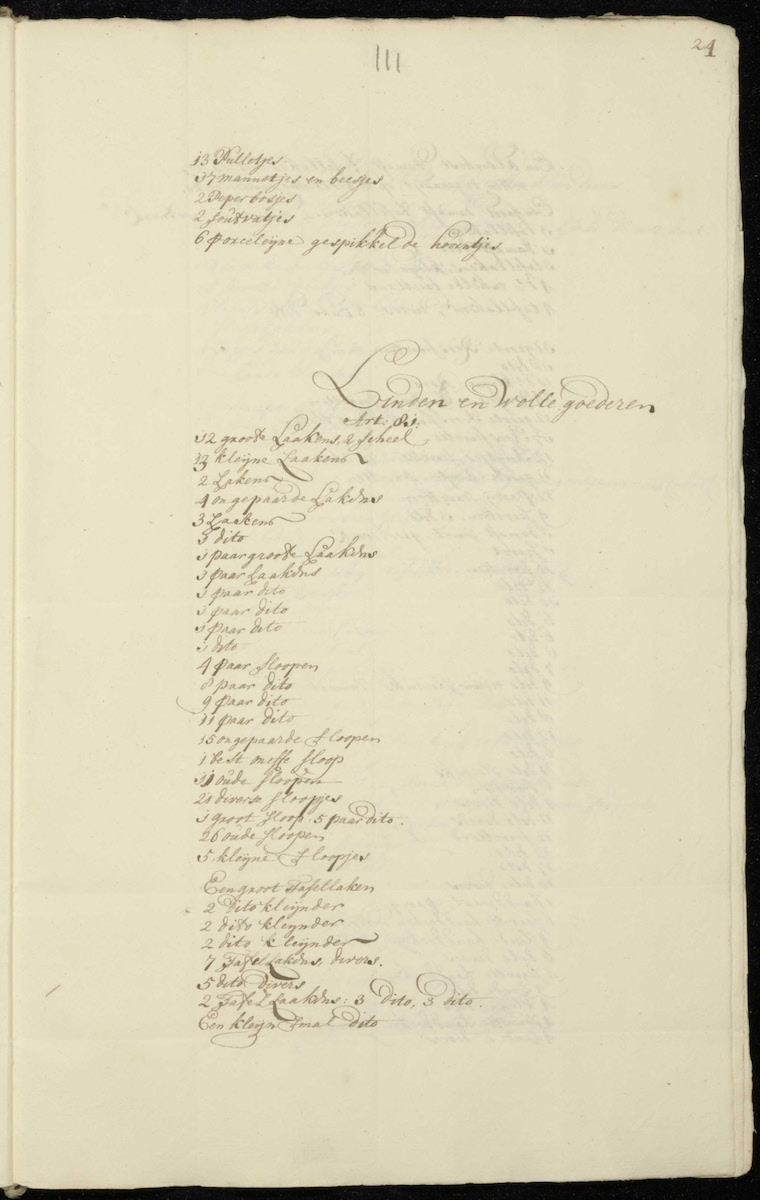 III
21
13 Pulletjes
17 mannetjes en beesjes
2 Peperbosjes
2 Zoutvatjes
6 Porceleijne gespikkelde hoorntjes
Linden en wolle goederen
Art: 81:
12 groote Laakens, 2 scheel
13 kleijne Laakens
2 Lakens
4 ongepaarde Lakens
3 Laakens
3 dito
1 paar groote Laakens
1 paar Laakens
1 paar dito
1 paar dito
1 paar dito
1 dito
4 paar sloopen
8 paar dito
9 paar dito
11 paar dito
15 ongepaarde sloopen
1 best neffe sloop
11 oude sloopen
21 diverse sloopjes
1 groot sloop 5 paar dito.
26 oude sloopen
5 kleijne sloopjes
Een groot Tafellaken
2 dito kleijnder
2 dito kleijnder
2 dito kleijnder
7 Tafellakens, divers.
5 dito divers
2 Tafel Laakens: 3 dito, 3 dito.
Een kleijn smal dito